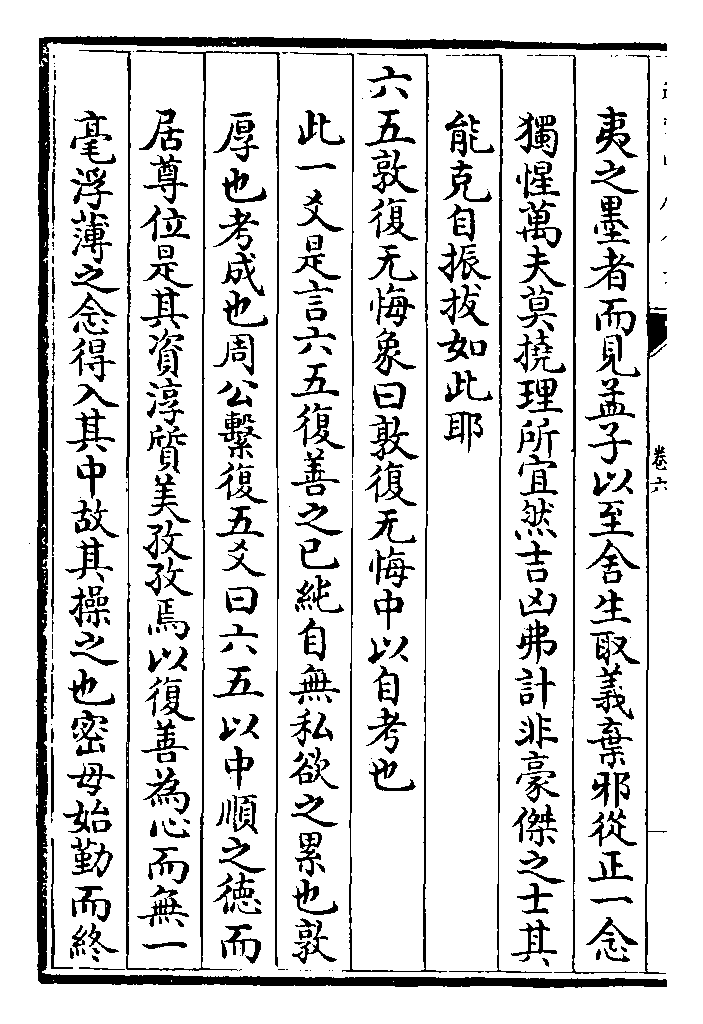 夷之墨者而見孟子以至舍生取義棄邪從正一念
獨惺萬夫莫撓理所宜然吉凶弗計非豪傑之士其
能克自振拔如此耶
六五敦復无悔象曰敦復无悔中以自考也
此一爻是言六五復善之已純自無私欲之累也敦
厚也考成也周公繫復五爻曰六五以中順之德而
居尊位是其資淳質美孜孜焉以復善為心而無一
毫浮薄之念得入其中故其操之也密毋始勤而終
卷六